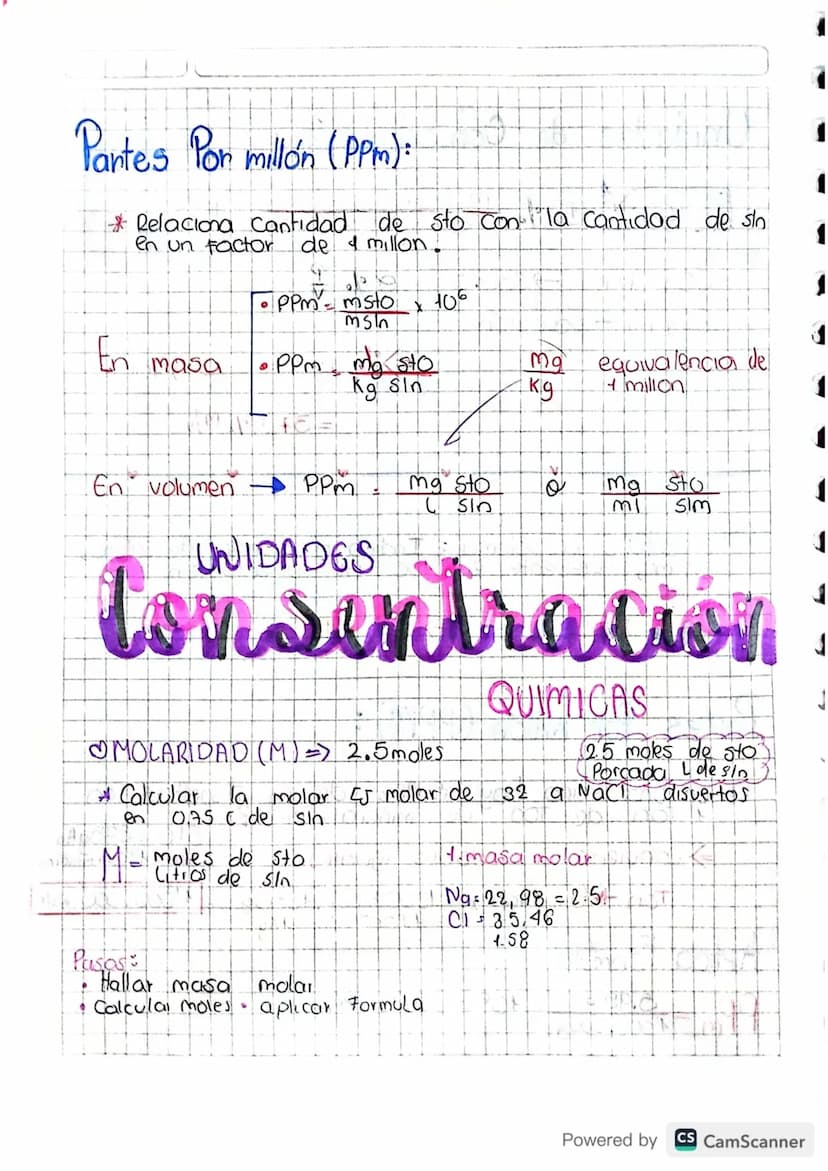 Partes Por millón (PPm):
* Relaciona cantidad de sto con la cantidad de sln
en un factor de 1 millon.
En masa
• PPm = msto / msln x 10⁶
• PPm = mg sto / Kg sln
mg / Kg equivalencia de
1 millon
En volumen → PPm = mg sto / L sln ó mg sto / ml slm
UNIDADES
Consentración
QUIMICAS
MOLARIDAD (M) => 2.5moles
25 moles de sto
Porcada L de sln
* Calcular la molar molar de 32 g NaCl disuertos
en 0,75 L de sln
M = moles de sto / Litros de sln
1. masa molar
Na = 22,98 = 2.5
Cl = 35.46
1.58
Pasos:
• Hallar masa molar
• Calcular moles • aplicar Formula
Powered by CS CamScanner